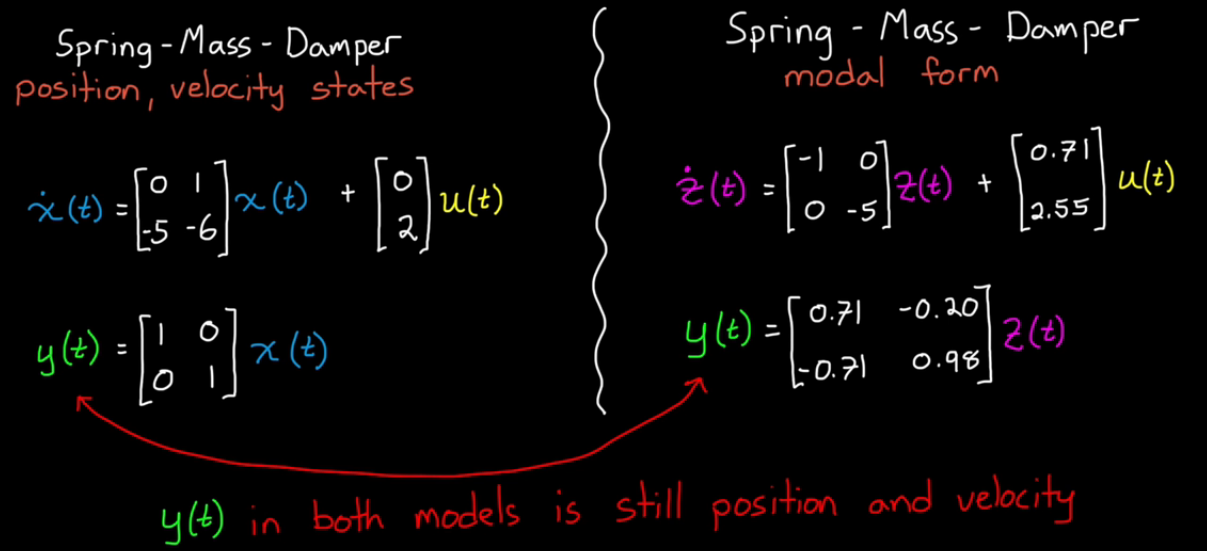 Spring-Mass-Damper
position, velocity states
ẋ(t) = [0 1
-5 -6] x(t) + [0
2] u(t)
y(t) = [1 0
0 1] x(t)
Spring - Mass - Damper
modal form
ż(t) = [-1 0
0 -5] z(t) + [0.71
2.55] u(t)
y(t) = [0.71 -0.20
-0.71 0.98] z(t)
y(t) in both models is still position and velocity